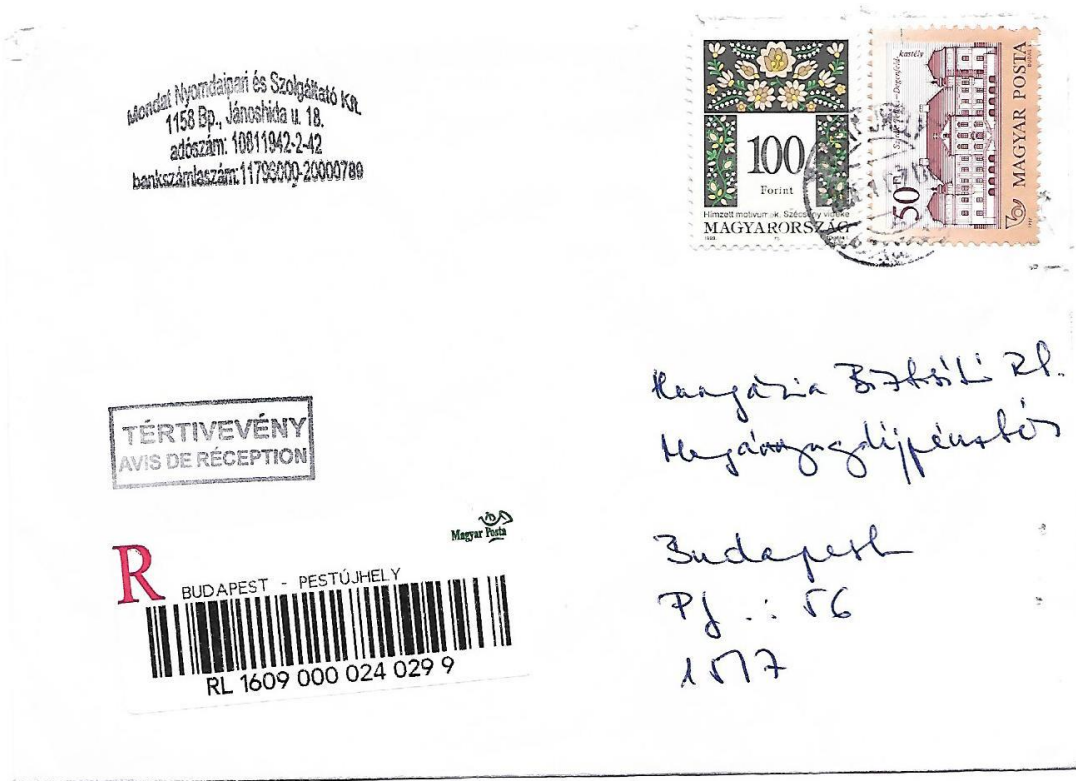 Mondat Nyomdaipari és Szolgáltató Kft.
1158 Bp., Jánoshida u. 18.
adószám: 10811942-2-42
bankszámlaszám:11796000-20000789
100
Forint
Hímzett motívumok. Szécsény vidéke
MAGYARORSZÁG
1999
Degenfeld-kastély
50 Ft
MAGYAR POSTA
1997
TÉRTIVEVÉNY
AVIS DE RÉCEPTION
Magyar Posta
R
BUDAPEST - PESTÚJHELY
RL 1609 000 024 029 9
Hungária Biztosító Rt.
Magánnyugdíjpénztár
Budapest
Pf.: 56
1517